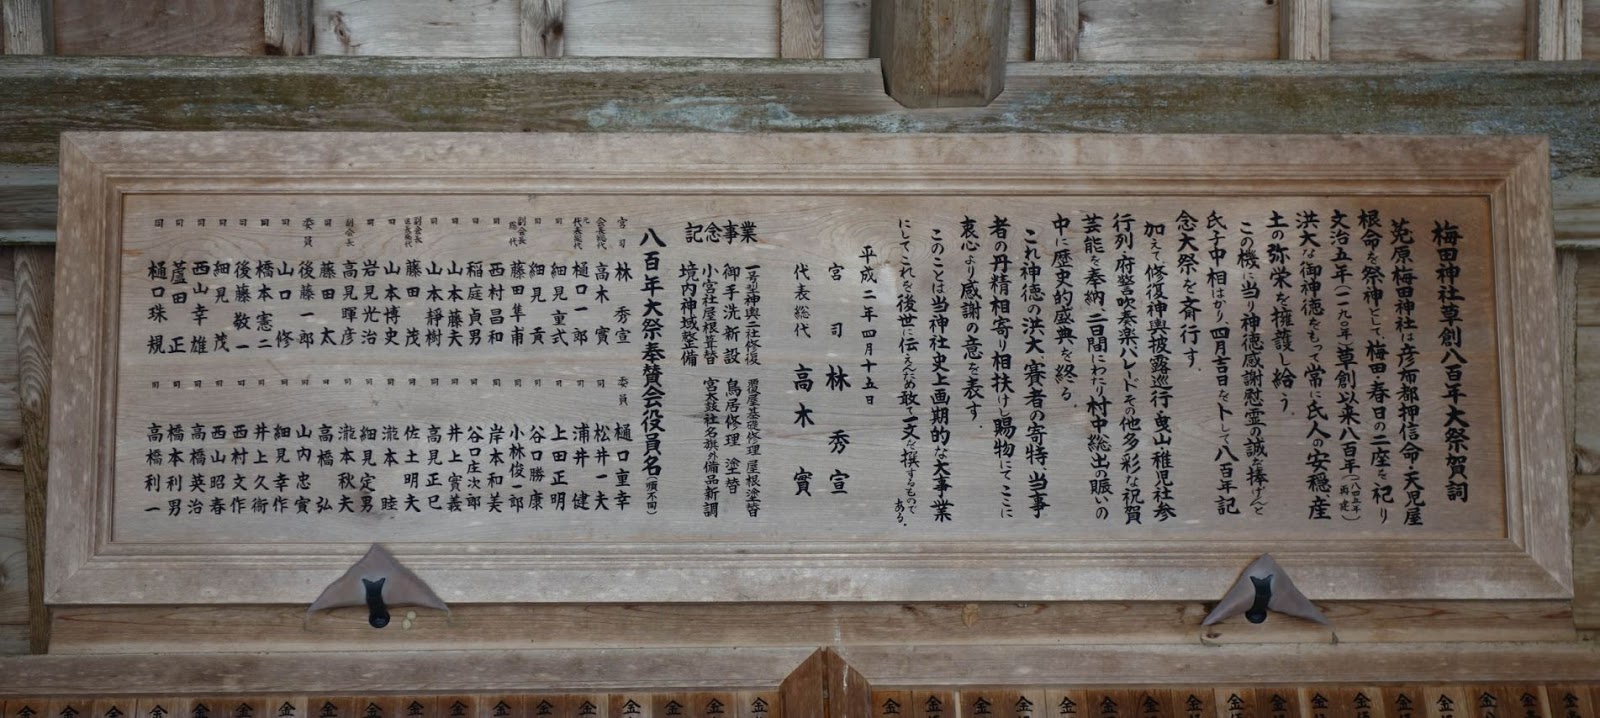 梅田神社草創八百年大祭賀詞
菟原梅田神社は彦布都押信命・天児屋
根命を祭神として梅田・春日の二座を祀り
文治五年(一一九〇年)草創以来八百年
洪大な御神徳をもって常に氏人の安穏産
土の弥栄を擁護し給う
この機に当り神徳感謝慰霊の誠を捧げんと
氏子中相はかり四月吉日を卜して八百年記
念大祭を斉行す
加えて、修復神輿披露巡行・曳山稚児社参
行列・府警吹奏楽パレードその他多彩な祝賀
芸能を奉納二日間にわたり村中総出の賑いの
中に歴史的盛典を終る
これ神徳の洪大、賽者の寄特、当事
者の丹精相寄り相扶けし賜物にてここに
衷心より感謝の意を表す
このことは当神社史上画期的な大事業
にしてこれを後世に伝えんため敢て一文を撰するもので
ある。
平成二年四月十五日
宮司 林秀宣
代表総代 高木實
記念事業
一号型神輿二社修復 覆屋基礎修理 屋根塗替
御手洗新設 鳥居修理 塗替
小宮社屋根葺替 宮太鼓社名旗外備品新調
境内神域整備
八百年大祭奉賛会役員名(順不同)
宮司 林秀宣 委員 樋口重幸
会長総代 高木實 同 松井一夫
元代表総代 樋口一郎 同 浦井健
同 細見重式 同 上田正明
同 細見貢 同 谷口勝康
副会長総代 藤田隼甫 同 小林俊一郎
同 西村昌和 同 岸本和美
同 稲庭貞男 同 谷口庄次郎
同 山本藤夫 同 井上實義
同 山本靜樹 同 高見正巳
副会長 藤田茂 同 佐土明夫
同 山本博史 同 瀧本睦
同 岩見光治 同 細見定男
副会長 高見暉彦 同 瀧本秋夫
同 藤田太 同 高橋弘
委員 後藤一郎 同 山内忠實
同 山口修 同 細見幸作
同 橋本憲二 同 井上久衛
同 後藤敬一 同 西村文作
同 細見茂 同 西山昭春
同 西山幸雄 同 高橋英治
同 蘆田正 同 橋本利男
同 樋口珠規 同 高橋利一